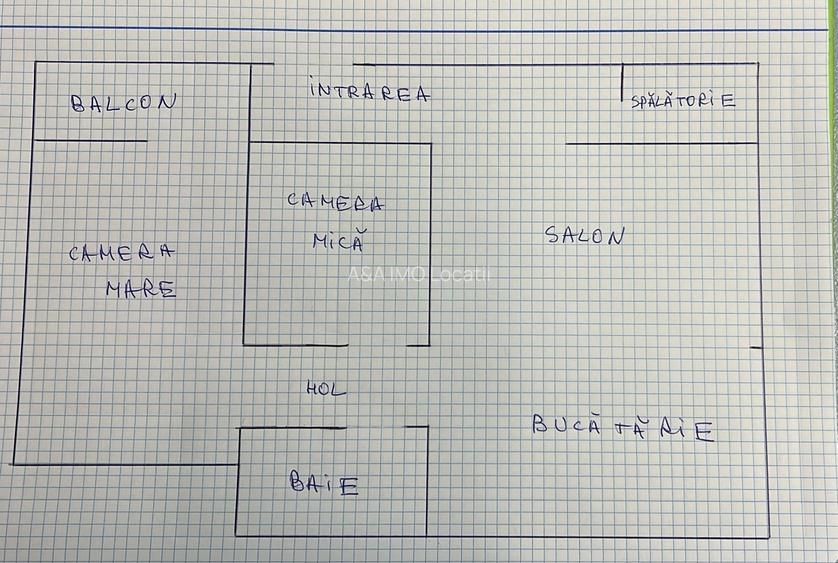 BALCON
INTRAREA
SPĂLĂTORIE
CAMERA
MICĂ
SALON
CAMERA
MARE
A&A IMO Locatii
HOL
BUCĂTĂRIE
BAIE